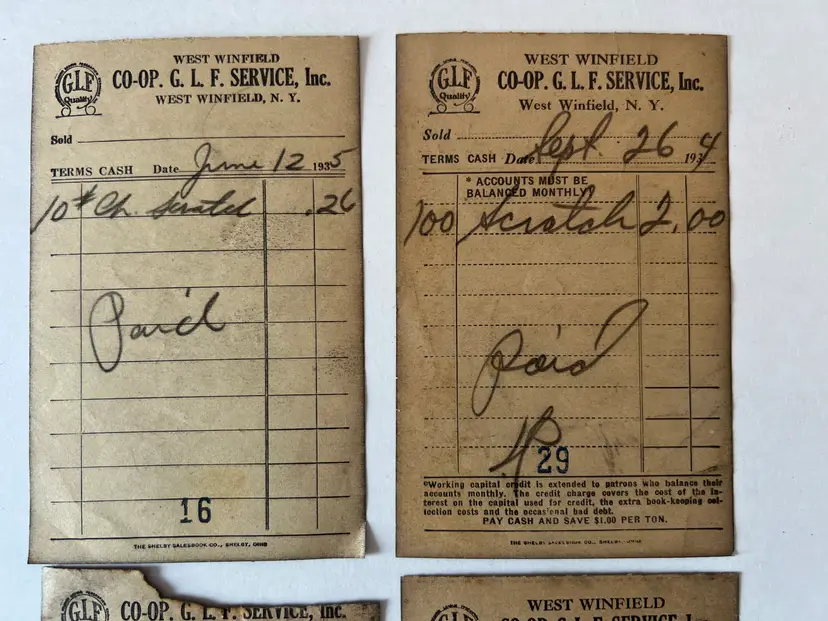 WEST WINFIELD
GLF
Quality
CO-OP. G. L. F. SERVICE, Inc.
WEST WINFIELD, N. Y.
Sold
TERMS CASH Date June 12 1935
10# Ch. Scratch .26
Paid
16
THE SHELBY SALESBOOK CO., SHELBY, OHIO
WEST WINFIELD
GLF
Quality
CO-OP. G. L. F. SERVICE, Inc.
West Winfield, N. Y.
Sold
TERMS CASH Date Sept. 26 1934
* ACCOUNTS MUST BE
BALANCED MONTHLY
100 Scratch 2.00
Paid
29
*Working capital credit is extended to patrons who balance their
accounts monthly. The credit charge covers the cost of the in-
terest on the capital used for credit, the extra book-keeping col-
lection costs and the occasional bad debt.
PAY CASH AND SAVE $1.00 PER TON.
THE SHELBY SALESBOOK CO., SHELBY, OHIO
GLF
CO-OP. G. L. F. SERVICE, Inc.
WEST WINFIELD
GLF
CO-OP. G. L. F. SERVICE, Inc.